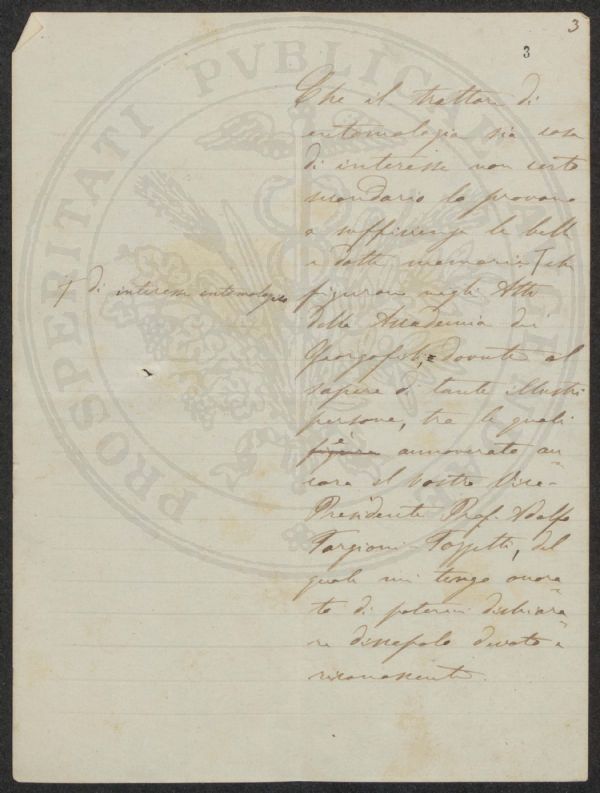 3
3
PROSPERITATI PVBLICAE AVGENDAE
Che il trattare di
entomologia sia cosa
di interesse non certo
secondario lo provano
a sufficienza le belle
e dotte memorie che
† di interesse entomologico
figurano negli Atti
della Accademia dei
Georgofili, dovute al
sapere di tante illustri
persone, tra le quali
figura è annoverato an-
cora il vostro Vice-
Presidente Prof. Adolfo
Targioni-Tozzetti, del
quale mi tengo onora-
to di potermi dichiara-
re discepolo devoto e
riconoscente.